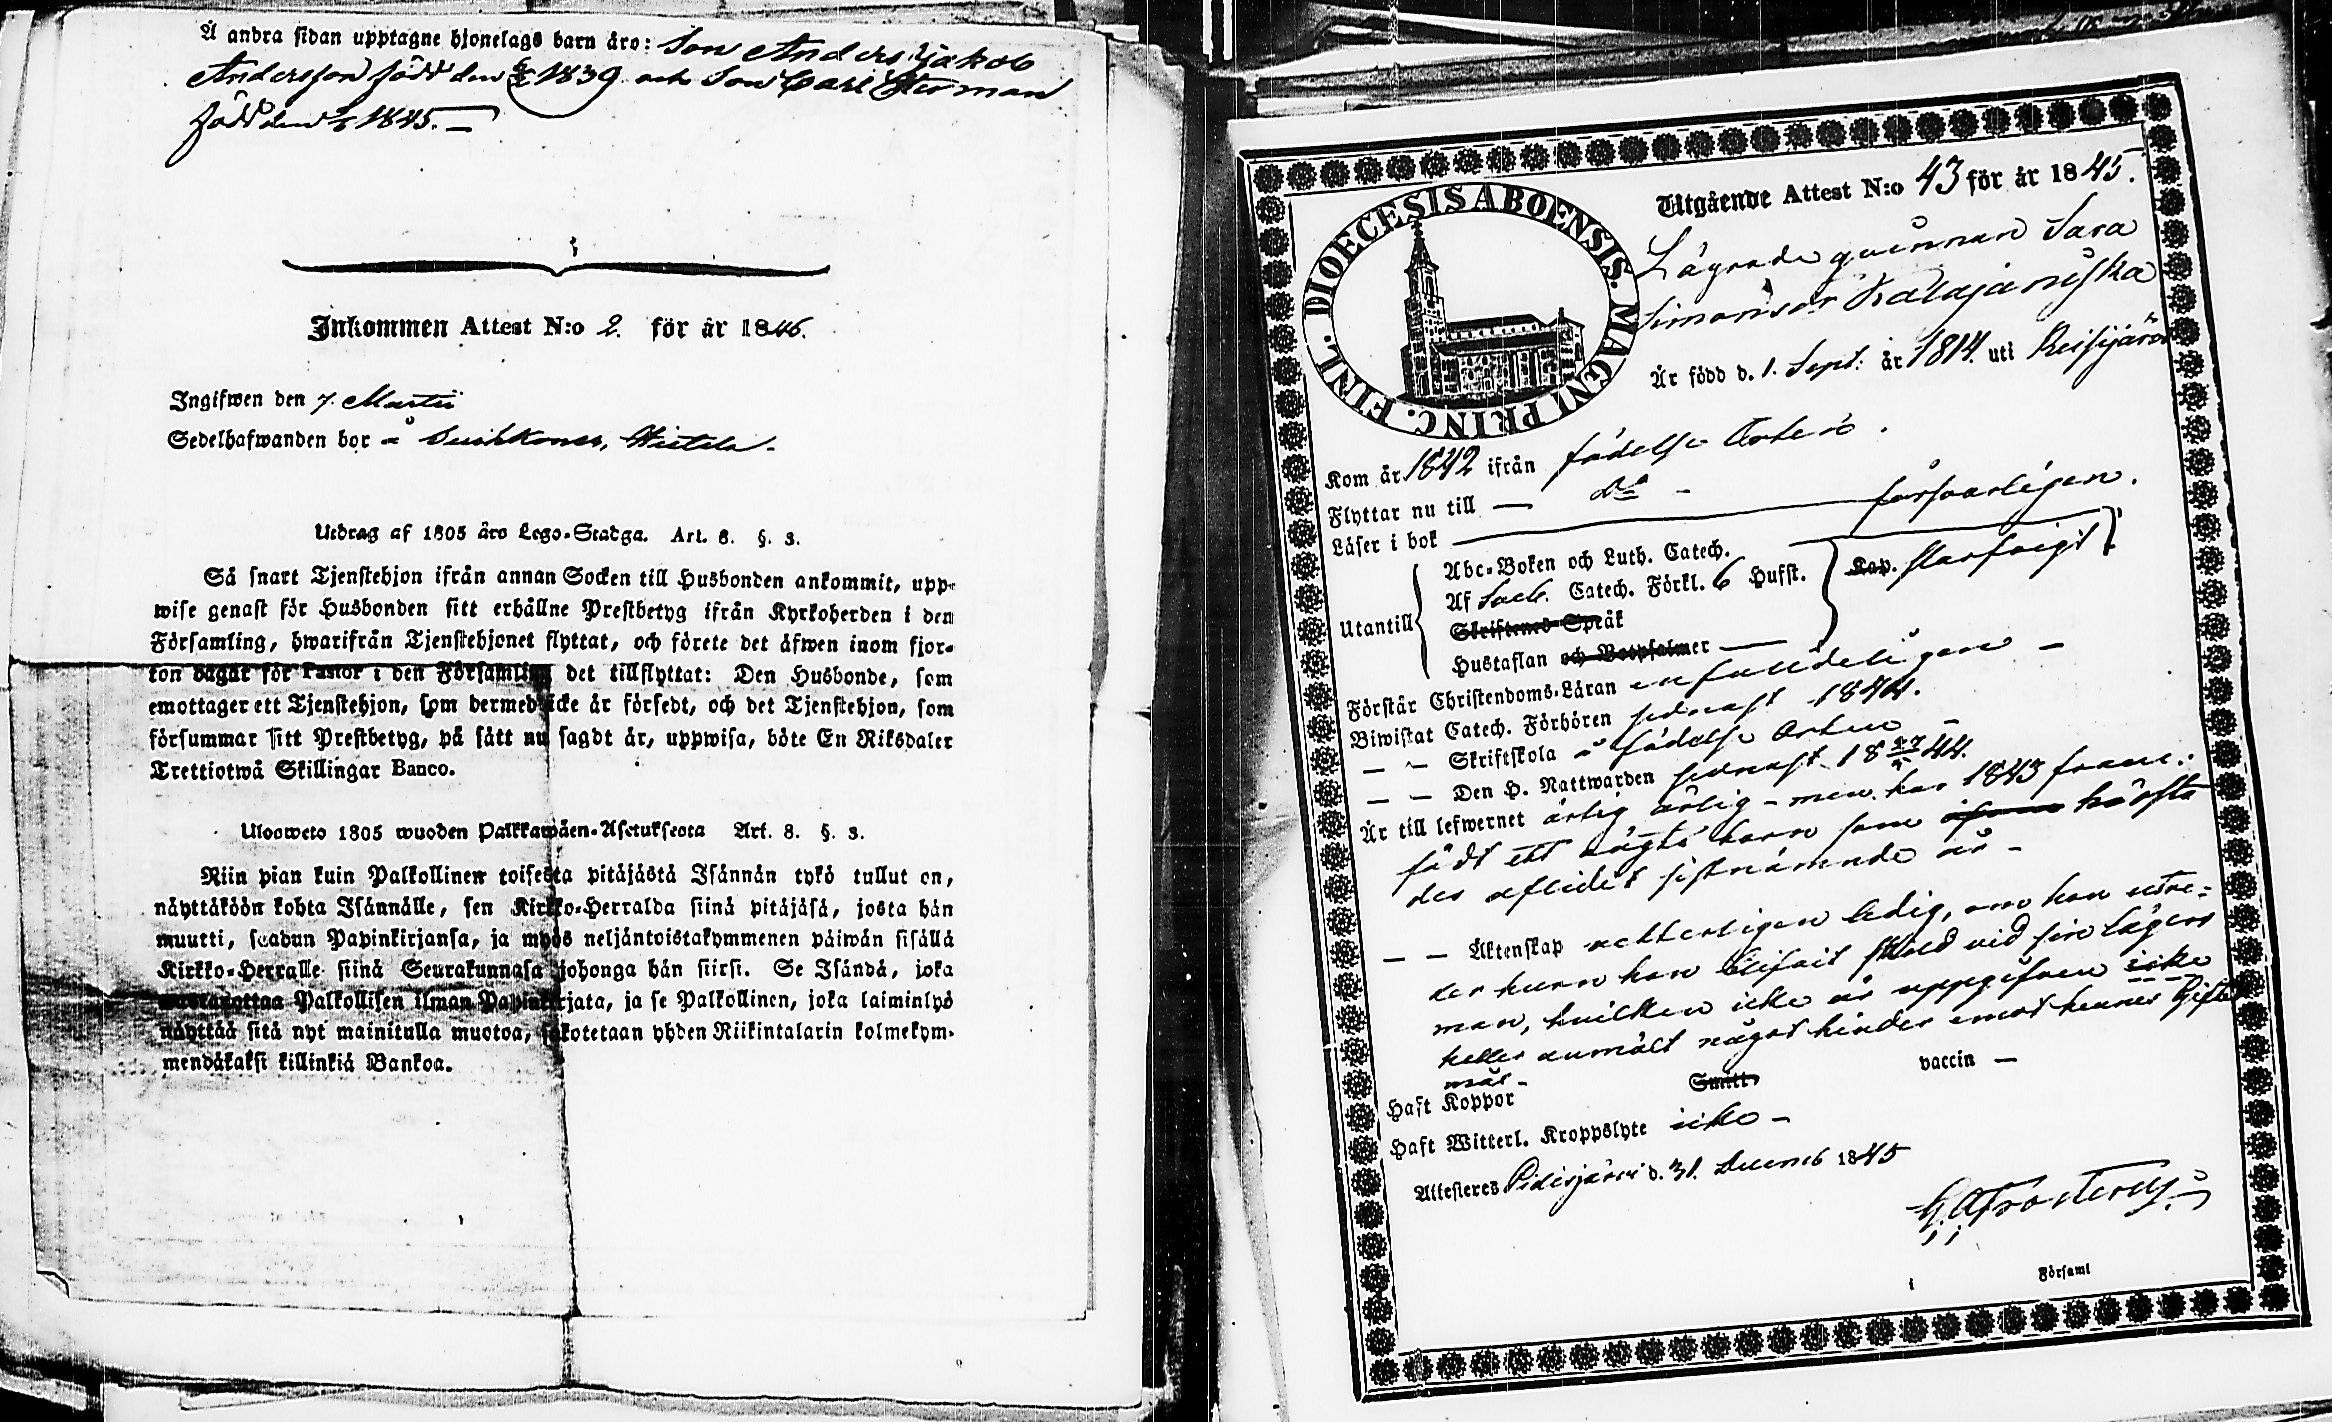 Å andra sidan upptagne hjonelags barn äro: Son Anders Jakob
Andersson född den 1839 och Son Carl Herman
född den 1845. —
Inkommen Attest N:o 2. för år 1846.
Ingifwen den 7. Martii
Sedelhafwanden bor å
Utdrag af 1805 års Lego-Stadga. Art. 8. §. 3.
Så snart Tjenstehjon ifrån annan Socken till Husbonden ankommit, upp-
wise genast för Husbonden sitt erhållne Prestbetyg ifrån Kyrkoherden i den
Församling, hwarifrån Tjenstehjonet flyttat, och förete det äfwen inom fjor-
ton dagar för Pastor i den Församling det tillflyttat: Den Husbonde, som
emottager ett Tjenstehjon, som dermed icke är försedt, och det Tjenstehjon, som
försummar sitt Prestbetyg, på sätt nu sagdt är, uppwisa, böte En Riksdaler
Trettiotwå Skillingar Banco.
Uloosweto 1805 wuoden Palkkawäen-Asetuksesta Art. 8. §. 3.
Niin pian kuin Palkollinen toisesta pitäjästä Isännän tykö tullut on,
näyttäköön kohta Isännälle, sen Kirkko-Herralda siinä pitäjäsä, josta hän
muutti, saadun Papinkirjansa, ja myös neljäntoistakymmenen päiwän sisällä
Kirkko-Herralle siinä Seurakunnasa johonga hän siirsi. Se Isändä, joka
wastaanottaa Palkollisen ilman Papinkirjata, ja se Palkollinen, joka laiminlyö
näyttää sitä nyt mainitulla muotoa, sakotetaan yhden Riikintalarin kolmekym-
mendäkaksi killinkiä Bankoa.
DIOECESIS ABOENSIS. MAGNI PRINC. FINL.
Utgående Attest N:o 43 för år 1845.
Lägrade qvinnan Sara
Simonsdr Kalajaniska
Är född d. 1. Sept. år 1814. uti Reisijärvi
Kom år 1842 ifrån födelse Orten.
Flyttar nu till — do —
Läser i bok — försvarligen.
Abc-Boken och Luth. Catech.
Af Catech. Förkl. 6 Hufst. Kap. starfvigt
Utantill Skriftenes Språk
Hustaflan och Botpsalmer —
Förstår Christendoms-Läran enfalldeligen —
Biwistat Catech. Förhören sednast 1844.
— — Skriftskola å födelse Orten —
— — Den H. Nattwarden sednast 18 44.
Är till lefwernet ärlig – men har 1843 fram-
födt ett oägta barn som
des aflidit sistnämnde år –
— — Äktenskap ledig, om hon utre-
der hurn hon blifvit skild vid sin Lägers
man, hvilken icke är uppgifven icke
heller anmält något hinder emot hennes Gifte
mål –
Haft Koppor Smitt. vaccin —
Haft Witterl. Kroppslyte icke —
Attesteras Pidisjärvi d. 31. Decemb 1845
i Församl